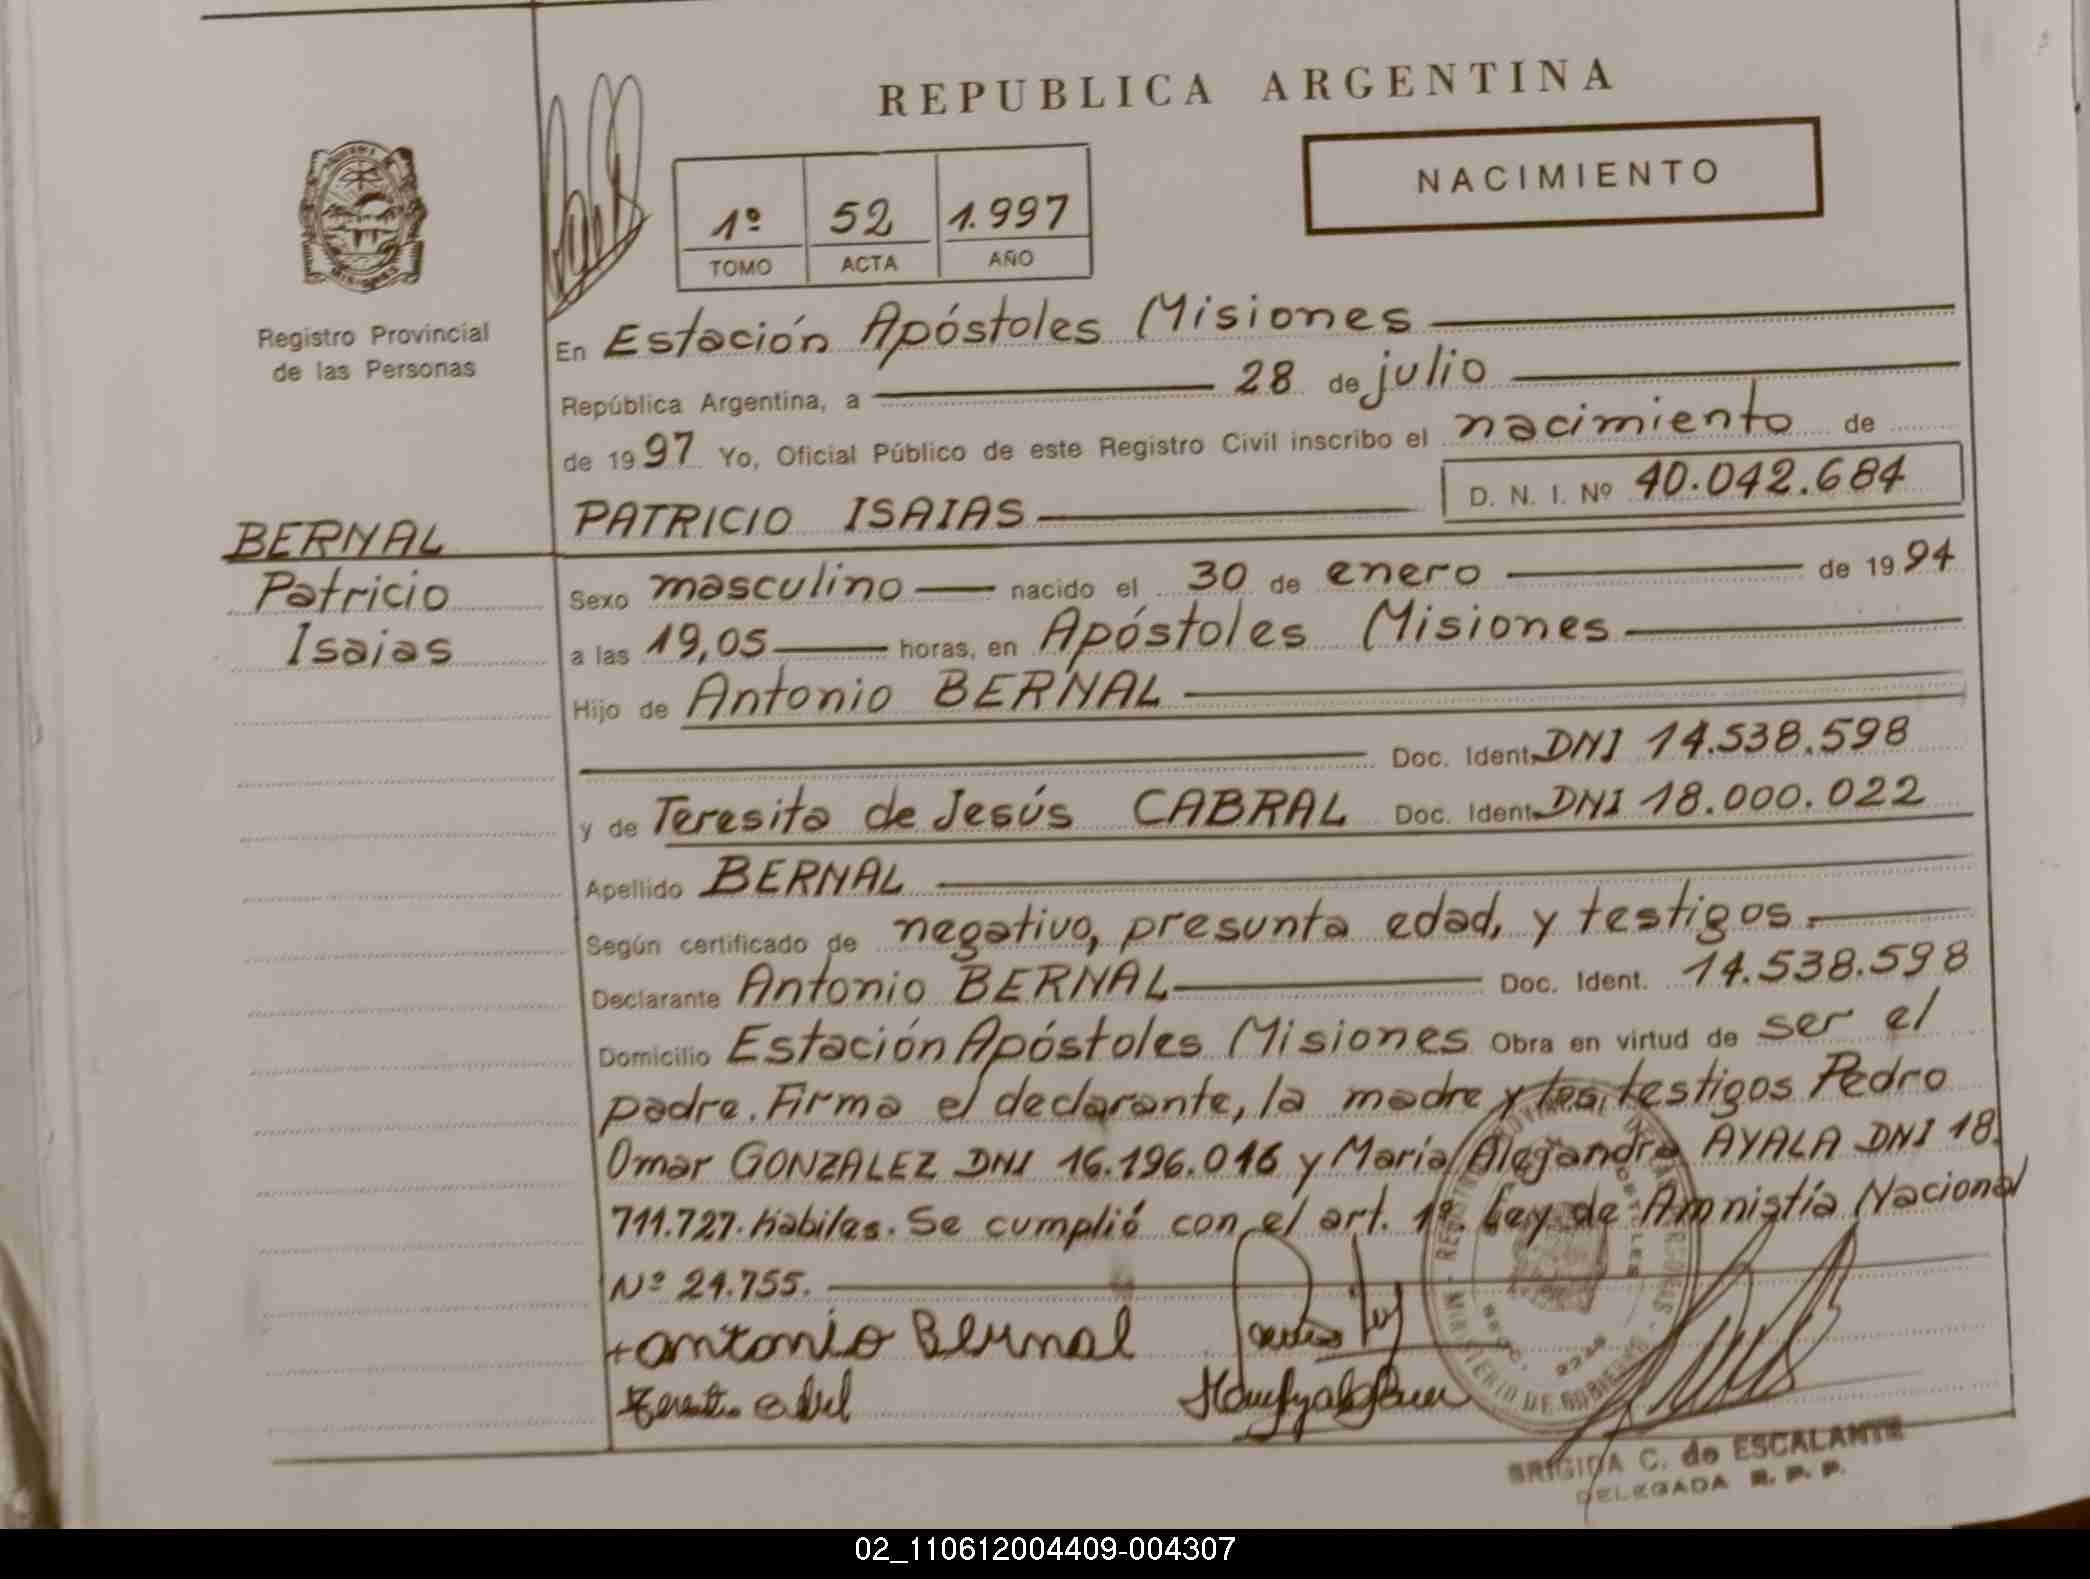 REPUBLICA ARGENTINA
NACIMIENTO
1º 52 1.997
TOMO ACTA AÑO
Registro Provincial
de las Personas
En Estación Apóstoles Misiones
República Argentina, a 28 de julio
de 1997 Yo, Oficial Público de este Registro Civil inscribo el nacimiento de
PATRICIO ISAIAS D. N. I. Nº 40.042.684
BERNAL
Patricio
Isaias
Sexo masculino nacido el 30 de enero de 1994
a las 19,05 horas, en Apóstoles Misiones
Hijo de Antonio BERNAL
Doc. Ident. DNI 14.538.598
y de Teresita de Jesús CABRAL Doc. Ident. DNI 18.000.022
Apellido BERNAL
Según certificado de negativo, presunta edad, y testigos.
Declarante Antonio BERNAL Doc. Ident. 14.538.598
Domicilio Estación Apóstoles Misiones Obra en virtud de ser el
padre. Firma el declarante, la madre y los testigos Pedro
Omar GONZALEZ DNI 16.196.046 y María Alejandra AYALA DNI 18.
711.727. habiles. Se cumplió con el art. 1º. Ley de Amnistía Nacional
Nº 24.755.
Antonio Bernal
BRIGIDA C. de ESCALANTE
DELEGADA R. P. P.
02_110612004409-004307